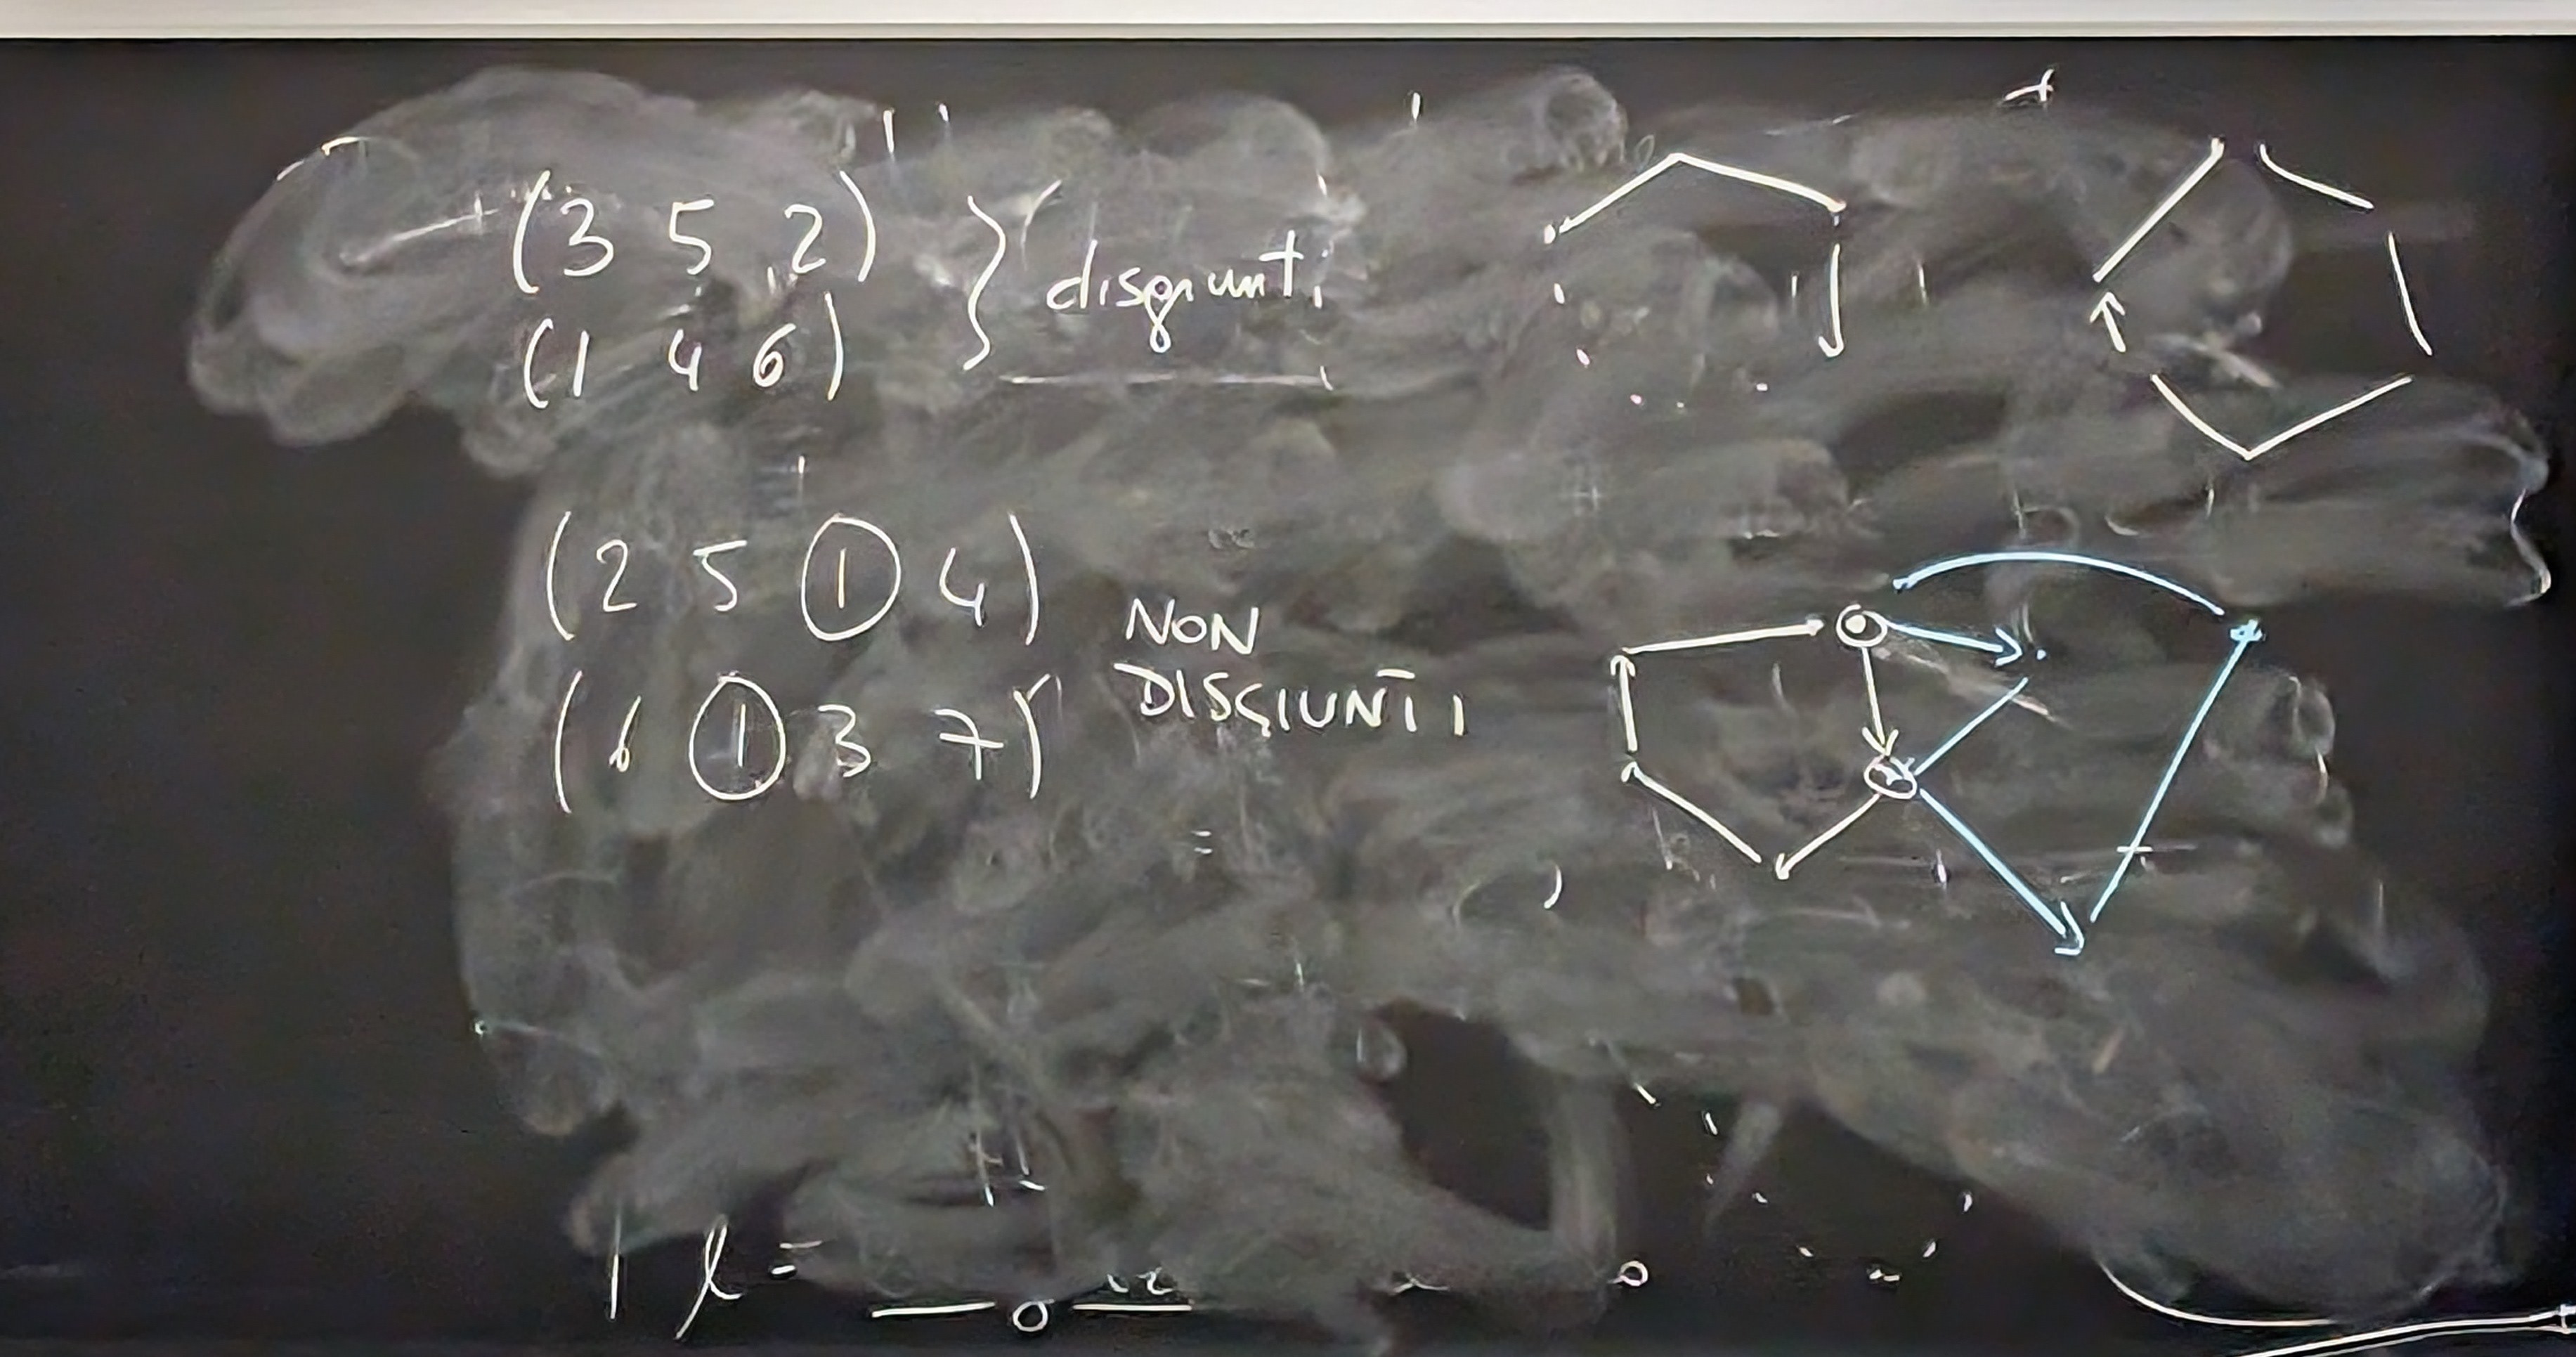 (3 5 2)
(1 4 6)
disgiunti
(2 5 1 4)
(6 1 3 7)
NON
DISGIUNTI